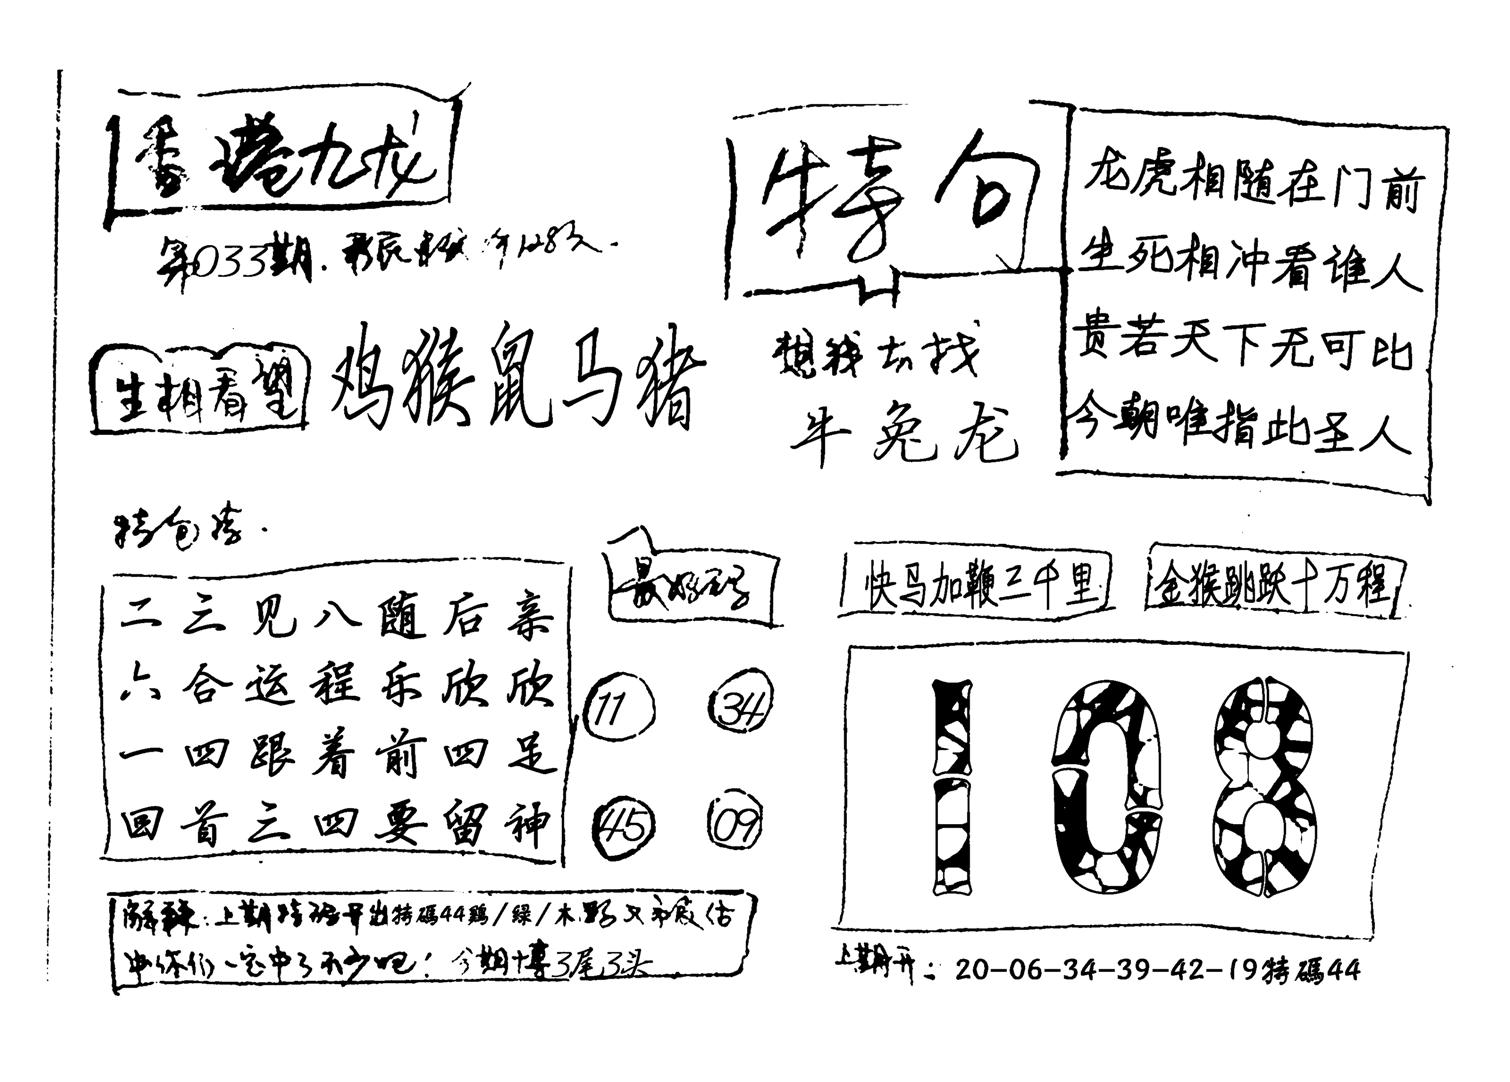 香港九龙
第033期.
生相看望
鸡猴鼠马猪
特句
龙虎相随在门前
生死相冲看谁人
贵若天下无可比
今朝唯指此圣人
想我去找
牛兔龙
二三见八随后亲
六合运程乐欣欣
一四跟着前四足
回首三四要留神
最好码
11 34
45 09
快马加鞭三千里
金猴跳跃十万程
108
上期特码开出特碼44鷄/綠/木
你们一定中了不少吧! 今期博3尾3头
上期开: 20-06-34-39-42-19特碼44